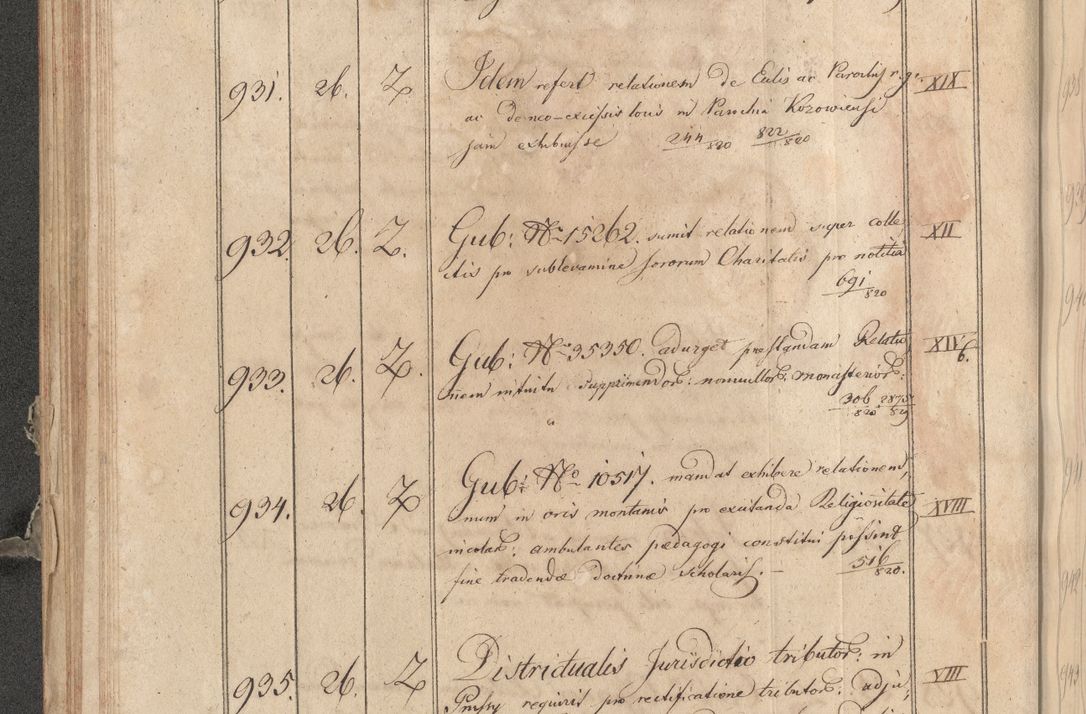 931. 26. Z. Idem refert relationem de Eclis ac Parochis r. g. XIX
ac de neo-excissis locis in Parochia Kozowiensi
jam exhibuisse 244/820 822/820
932. 26. Z. Gub: No 15262. sumit relationem super colle XII
ctis pro sublevamine Sororum Charitatis pro notitia
691/820
933. 26. Z. Gub: No 35350. adurget praestandam Relatio XIV 6.
nem intuitu supprimendor: nonnullor: monasterior:
306/820 2875/59
934. 26. Z. Gub: No 10517. mandat exhibere relationem, XVIII
num in oris montanis pro excitanda Religiositate
incolar: ambulantes paedagogi constitui possint
fine tradendae doctrinae scholaris. — 516/820.
935. 26. Z. Districtualis Jurisdictio tributor: in VIII
requirit pro rectificatione tributor: adju,